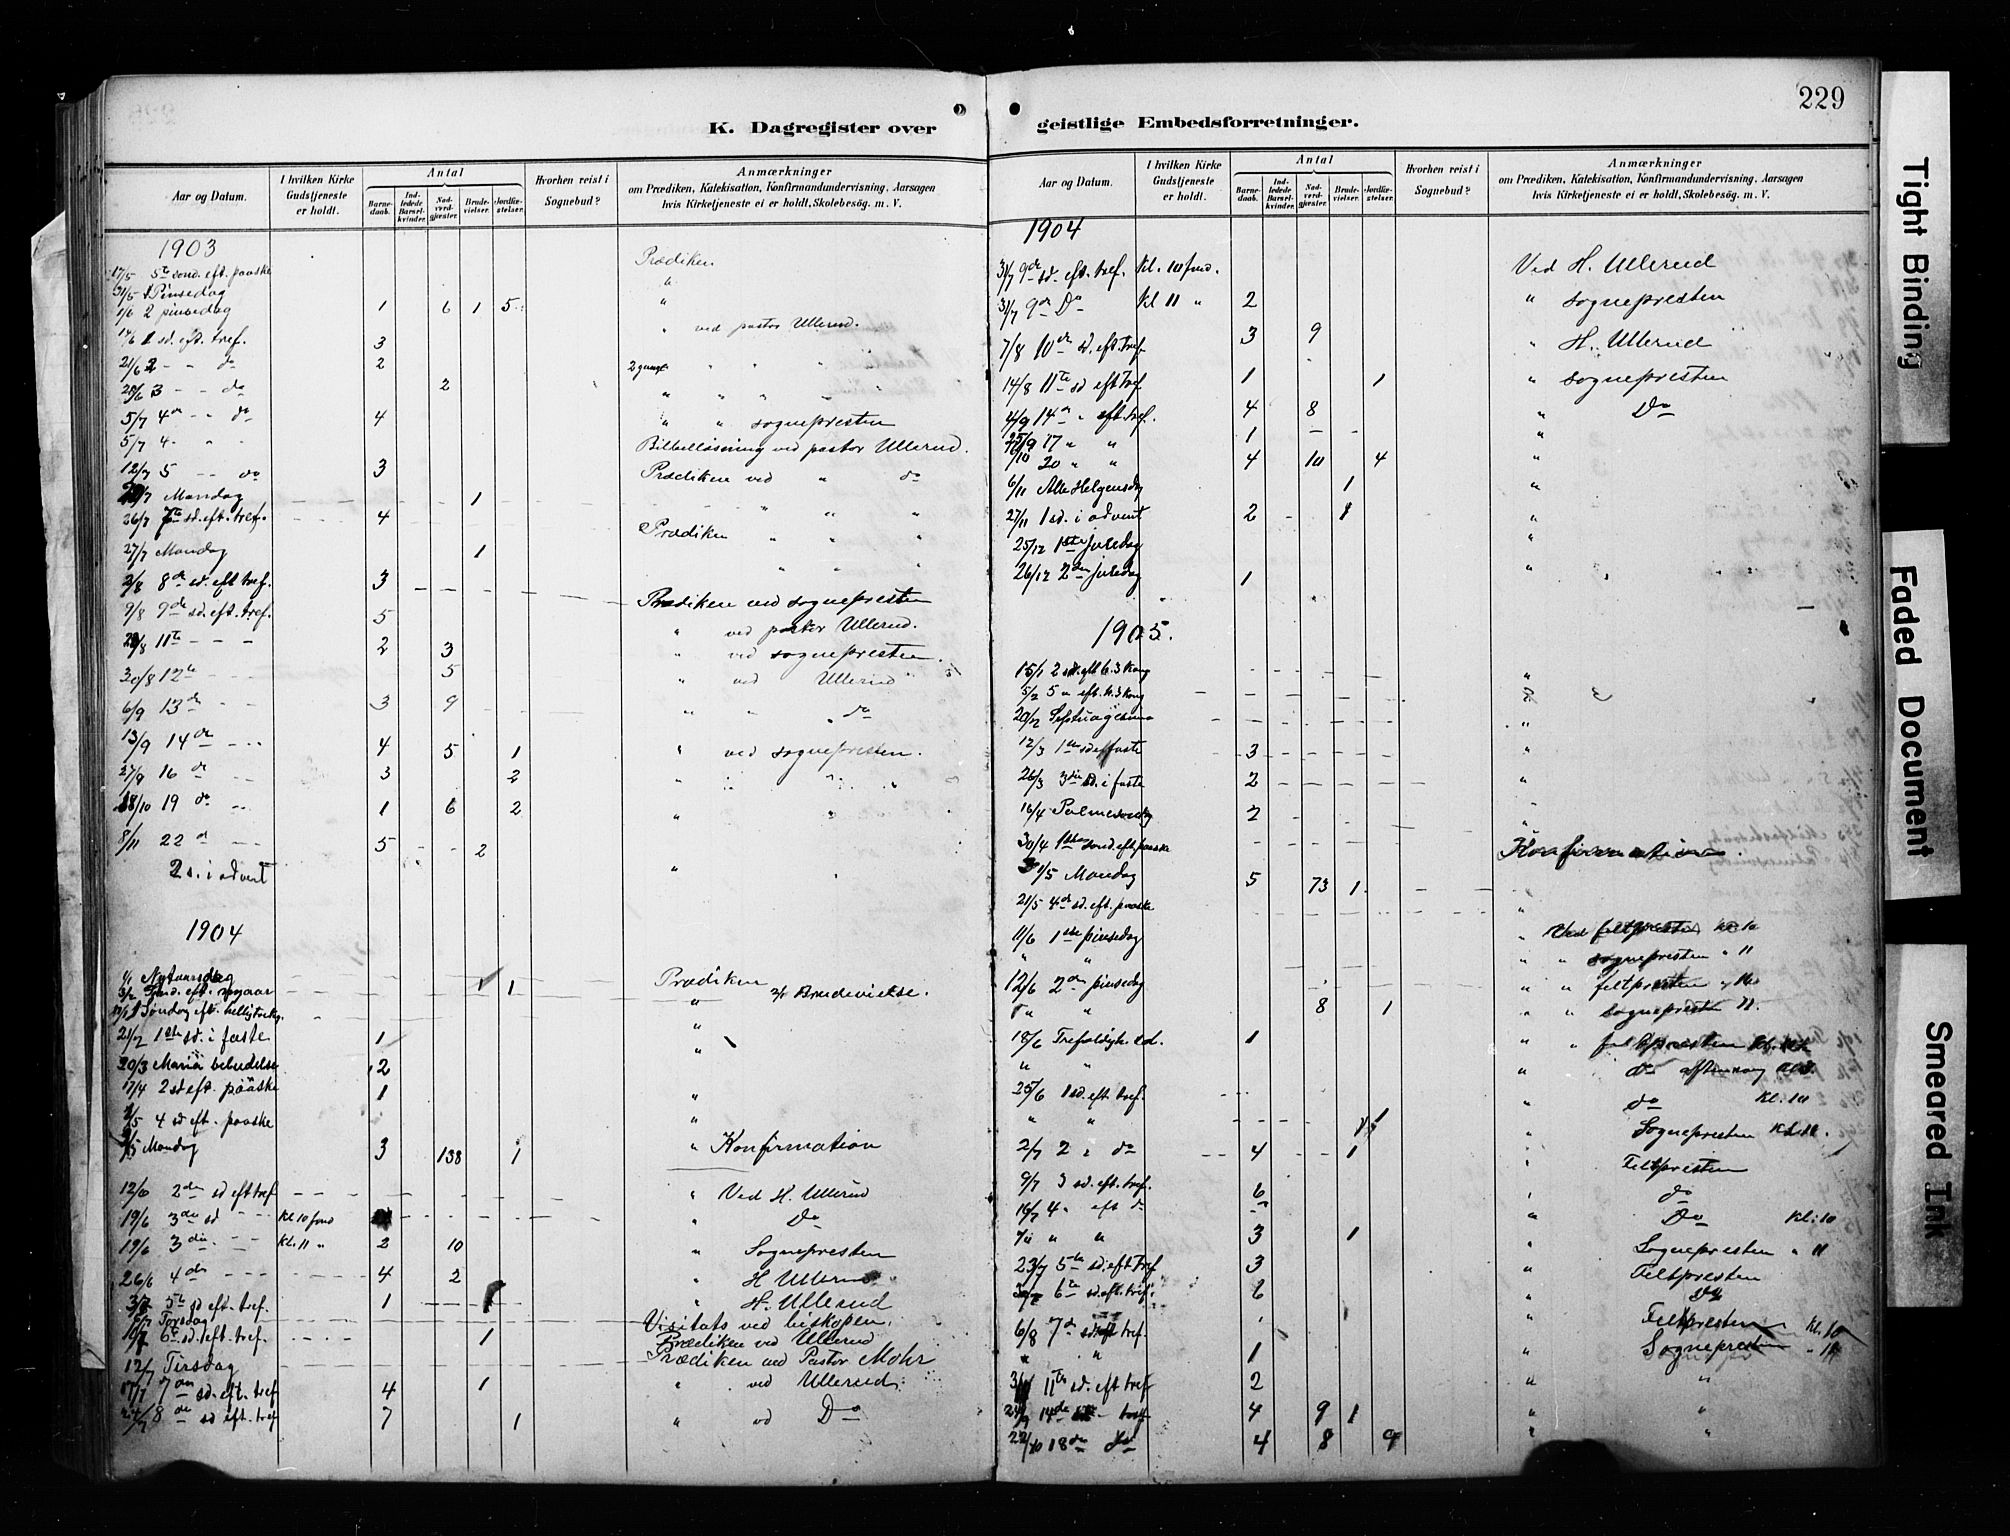 229
K. Dagregister over
geistlige Embedsforretninger.
Aar og Datum. I hvilken Kirke Gudstjeneste er holdt. Antal Barnedaab. Indledede Barselkvinder. Nadverdgjæster. Brudevielser. Jordfæstelser. Hvorhen reist i Sognebud? Anmærkninger om Prædiken, Katekisation, Konfirmandundervisning, Aarsagen hvis Kirketjeneste ei er holdt, Skolebesøg. m. V.
1903
17/5 5te sønd. eft. paaske Prædiken
31/5 1 Pinsedag "
1/6 2 pinsedag 1 6 1 5 "
14/6 1 sd. eft. tref. 3 " ved pastor Ullerud.
21/6 2 - - do 2 2 gange " " "
28/6 3 - - do 2 " " " "
5/7 4de - - do 4 " " sognepresten
5/7 4 - " " Bibellæsning ved pastor Ullerud.
12/7 5 - - do 3 Prædiken ved " do
20/7 Mandag 1 " " "
26/7 7te sd. eft. tref. 4 Prædiken " " "
27/7 Mandag 1 " " "
2/8 8de sd. eft. tref. 3 Prædiken ved sognepresten
9/8 9de sd. eft. tref. 5 " ved pastor Ullerud.
11te - - - 2 3 " ved sognepresten.
30/8 12te 5 " ved Ullerud
6/9 13de - - 3 9 " " " do
13/9 14de - - - 4 5 1 " ved sognepresten.
27/9 16de - - 3 2 " " " "
18/10 19 de - - 1 6 2 " "
8/11 22 d - - 5 2
2 s. i advent " "
1904
1/1 Nytaarsdag 1 1 Prædiken
Brudevielse.
Søndag eft.
21/2 1ste sd. i faste 1 "
20/3 Mariæ bebudelse 2 "
17/4 2 sd eft. pååske 1 "
4 sd eft. paaske
Mandag 3 138 1 " Konfirmation
12/6 2den sd eft tref " Ved H. Ullerud
19/6 3die sd - - Kl 10 fmd " Do
19/6 3die - - Kl. 11 " 2 10 " Sognepresten
26/6 4de - - - 4 2 " H Ullerud
3/7 5te sd eft. tref. 1 " H. Ullerud
Torsdag Visitats ved biskopen.
10/7 6te sd. eft. tref. 1 Prædiken ved Ullerud
12/7 Tirsdag Prædiken ved Pastor Mohr
17/7 7de sd. eft. tref 4 1 " ved Ullerud.
24/7 8de sd eft. tref 7 1 " vd Do
Aar og Datum. I hvilken Kirke Gudstjeneste er holdt. Antal Barnedaab. Indledede Barselkvinder. Nadverdgjæster. Brudevielser. Jordfæstelser. Hvorhen reist i Sognebud? Anmærkninger om Prædiken, Katekisation, Konfirmandundervisning, Aarsagen hvis Kirketjeneste ei er holdt, Skolebesøg. m. V.
1904
31/7 9de sd. eft. tref. Kl. 10 fmd. Ved H. Ullerud
31/7 9de Do Kl 11 " 2 " sognepresten
7/8 10de sd. eft. tref 3 9 " H. Ullerud
14/8 11te sd eft tref 1 1 " sognepresten
4/9 14de " eft. tref. 4 8 " Do
25/9 17 " " 1 "
20 " " 4 10 4 "
6/11 Alle Helgensdag 1 "
27/11 1 sd. i advent 2 1 "
25/12 1ste juledag "
26/12 2den juledag 1 "
1905.
15/1 2 sd. eft h. 3 Kong "
5/2 5 " eft. h. 3 Kong "
Septuagesima "
12/3 1ste sd i faste 3 "
26/3 3die sd. i faste 2 "
16/4 Palmesøndag 2 "
30/4 1ste sønd. eft. paaske Konfirmation.
1/5 Mandag 5 73 1 "
21/5 4de sd. eft. paaske "
11/6 1ste pinsedag " Ved feltpresten Kl 10
" " " " sognepresten " 11
12/6 2den pinsedag " " feltpresten " 10
" " 8 1 " " sognepresten 11.
18/6 Trefoldigh. sd. 1 " " feltpresten
" " " do
25/6 1 sd. eft. tref. " do Kl: 10
" " Sognepresten Kl. 11.
2/7 2 " do 4 1 " Feltpresten
9/7 3 sd. eft. tref. 6 " do
16/7 4 " eft do " Do Kl: 10
" " 3 1 " Sognepresten " 11
23/7 5te sd. eft tref 3 " Feltpresten
6te sd. eft. tref. 6 " Do
6/8 7de sd. eft tref. " Feltpresten Kl. 10
" " 1 " Sognepresten " 11
11te sd. eft tref 2 " "
24/9 14de tref 4 9 1 " "
22/10 18de do 4 8 9 " "
Tight Binding
Faded Document
Smeared Ink